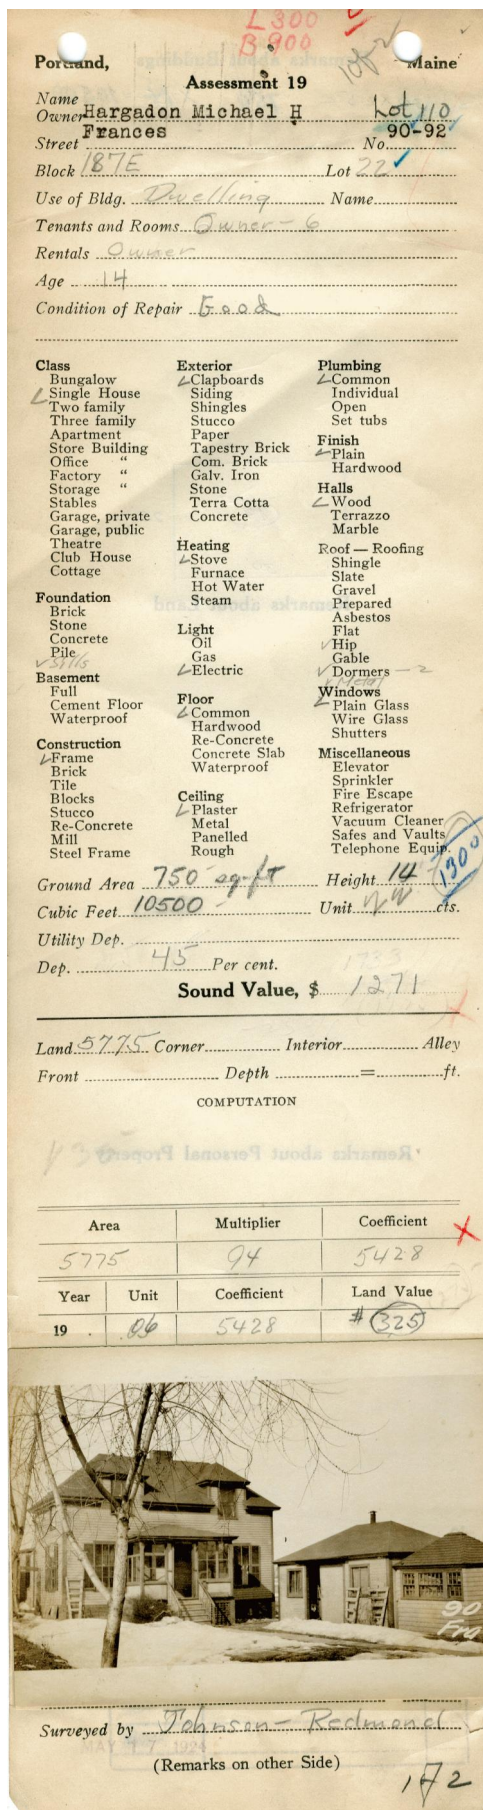 L300
B900
1 of 2
Portland, Maine
Assessment 19
Name
Owner Hargadon Michael H Lot 110
Frances 90-92
Street No.
Block 187E Lot 22
Use of Bldg. Dwelling Name
Tenants and Rooms Owner - 6
Rentals Owner
Age 14
Condition of Repair Good
Class
Bungalow
Single House
Two family
Three family
Apartment
Store Building
Office "
Factory "
Storage "
Stables
Garage, private
Garage, public
Theatre
Club House
Cottage
Foundation
Brick
Stone
Concrete
Pile
Sills
Basement
Full
Cement Floor
Waterproof
Construction
Frame
Brick
Tile
Blocks
Stucco
Re-Concrete
Mill
Steel Frame
Exterior
Clapboards
Siding
Shingles
Stucco
Paper
Tapestry Brick
Com. Brick
Galv. Iron
Stone
Terra Cotta
Concrete
Heating
Stove
Furnace
Hot Water
Steam
Light
Oil
Gas
Electric
Floor
Common
Hardwood
Re-Concrete
Concrete Slab
Waterproof
Ceiling
Plaster
Metal
Panelled
Rough
Plumbing
Common
Individual
Open
Set tubs
Finish
Plain
Hardwood
Halls
Wood
Terrazzo
Marble
Roof — Roofing
Shingle
Slate
Gravel
Prepared
Asbestos
Flat
Hip
Gable
Dormers — 2
Metal
Windows
Plain Glass
Wire Glass
Shutters
Miscellaneous
Elevator
Sprinkler
Fire Escape
Refrigerator
Vacuum Cleaner
Safes and Vaults
Telephone Equip.
1300
Ground Area 750 sq-ft Height 14
Cubic Feet 10500 Unit 22 cts.
Utility Dep.
Dep. 45 Per cent.
Sound Value, $ 1271
Land 5775 Corner Interior Alley
Front Depth = ft.
COMPUTATION
Remarks about Personal Property
Area Multiplier Coefficient
5775 94 5428
Year Unit Coefficient Land Value
19 06 5428 # 325
90
Fra
Surveyed by Johnson - Redmond
MAY 17 1924
(Remarks on other Side)
1 of 2